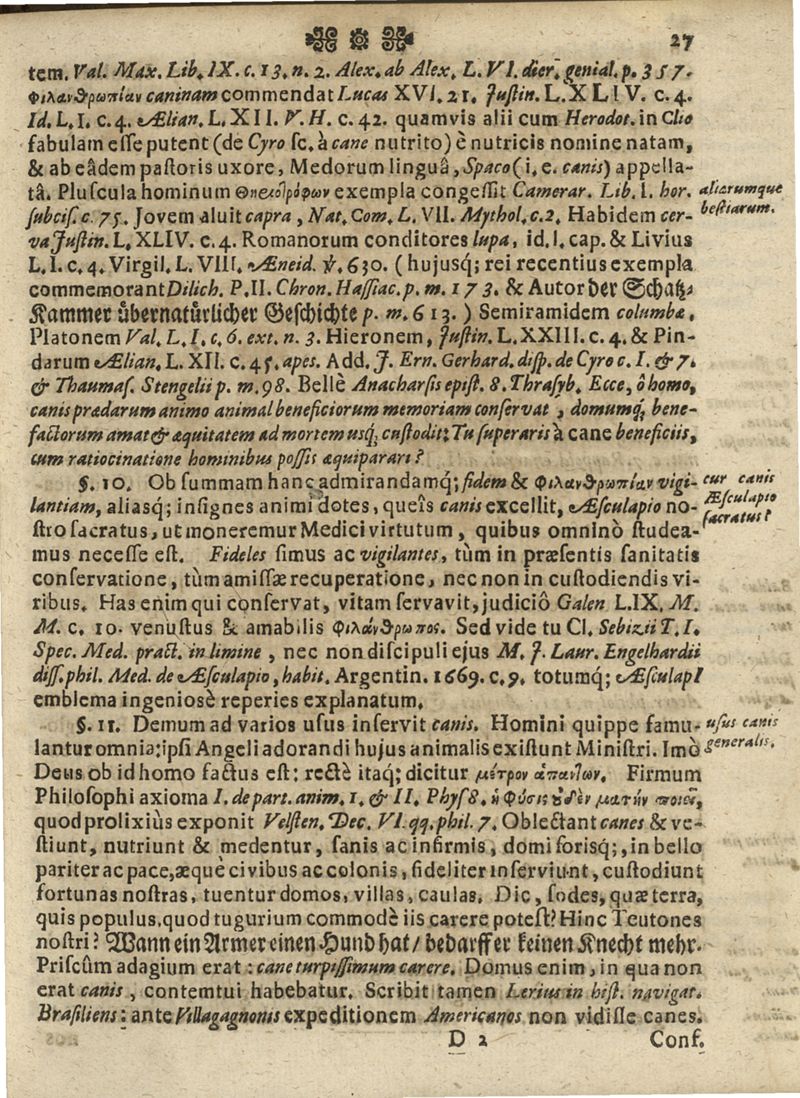 27
tem. Val. Max. Lib. IX. c. 13. n. 2. Alex. ab Alex. L. VI. dier. genial. p. 357.
Φιλανθρωπίαν caninam commendat Lucas XVI. 21. Juſtin. L. XLIV. c. 4.
Id. L. I. c. 4. Ælian. L. XII. V. H. c. 42. quamvis alii cum Herodot. in Clio
fabulam eſſe putent (de Cyro ſc. à cane nutrito) è nutricis nomine natam,
& ab eâdem paſtoris uxore, Medorum linguâ, Spaco (i. e. canis) appella-
tâ. Pluſcula hominum Θηειοτρόφων exempla congeſſit Camerar. Lib. I. hor.
aliarumque
beſtiarum.
ſubciſ. c. 75. Jovem aluit capra, Nat. Com. L. VII. Mythol. c. 2. Habidem cer-
va Juſtin. L. XLIV. c. 4. Romanorum conditores lupa, id. l. cap. & Livius
L. I. c. 4. Virgil. L. VIII. Æneid. ℣. 630. (hujusq; rei recentius exempla
commemorant Dilich. P. II. Chron. Haſſiac. p. m. 173. & Autor der Schatz-
Kammer übernatürlicher Geſchichte p. m. 613.) Semiramidem columbæ,
Platonem Val. L. I. c. 6. ext. n. 3. Hieronem, Juſtin. L. XXIII. c. 4. & Pin-
darum Ælian. L. XII. c. 45. apes. Add. J. Ern. Gerhard. diſp. de Cyro c. I. & 7.
& Thaumaſ. Stengelii p. m. 98. Bellè Anacharſis epiſt. 8. Thraſyb. Ecce, ô homo,
canis prædarum animo animal beneficiorum memoriam conſervat, domumq; bene-
factorum amat & æquitatem ad mortem usq; cuſtodit: Tu ſuperaris à cane beneficiis,
cum ratiocinatione hominibus poſſis æquiparari?
§. 10. Ob ſummam hanc admirandamq; fidem & Φιλανθρωπίαν vigi-
cur canis
Æſculapio
ſacratus?
lantiam, aliasq; inſignes animi dotes, queîs canis excellit, Æſculapio no-
ſtro ſacratus, ut moneremur Medici virtutum, quibus omninò ſtudea-
mus neceſſe eſt. Fideles ſimus ac vigilantes, tùm in præſentis ſanitatis
conſervatione, tùm amiſſæ recuperatione, nec non in cuſtodiendis vi-
ribus. Has enim qui conſervat, vitam ſervavit, judiciô Galen L. IX. M.
M. c. 10. venuſtus & amabilis Φιλάνθρωπος. Sed vide tu Cl. Sebizii T. I.
Spec. Med. pract. in limine, nec non diſcipuli ejus M. J. Laur. Engelhardii
diſſ. phil. Med. de Æſculapio, habit. Argentin. 1669. c. 9. totumq; Æſculapî
emblema ingenioſè reperies explanatum.
§. 11. Demum ad varios uſus inſervit canis. Homini quippe famu-
uſus canis
generalis.
lantur omnia: ipſi Angeli adorandi hujus animalis exiſtunt Miniſtri. Imò
Deus ob id homo factus eſt: rectè itaq; dicitur μέτρον ἁπάντων. Firmum
Philoſophi axioma I. de part. anim. 1. & II. Phyſ 8. ἡ φύσις ȣ̓δὲν ματήν ποιεῖ,
quod prolixiùs exponit Velſten. Dec. VI. qq. phil. 7. Oblectant canes & ve-
ſtiunt, nutriunt & medentur, ſanis ac infirmis, domi foriſq;, in bello
pariter ac pace, æquè civibus ac colonis, fideliter inſerviunt, cuſtodiunt
fortunas noſtras, tuentur domos, villas, caulas. Dic, ſodes, quæ terra,
quis populus, quod tugurium commodè iis carere poteſt? Hinc Teutones
noſtri? Wann ein Armer einen Hund hat/ bedarff er keinen Knecht mehr.
Priſcûm adagium erat: cane turpiſſimum carere. Domus enim, in qua non
erat canis, contemtui habebatur. Scribit tamen Lerius in hiſt. navigat.
Braſiliens: ante Villagagnonis expeditionem Americanos non vidiſſe canes.
D 2
Conf.